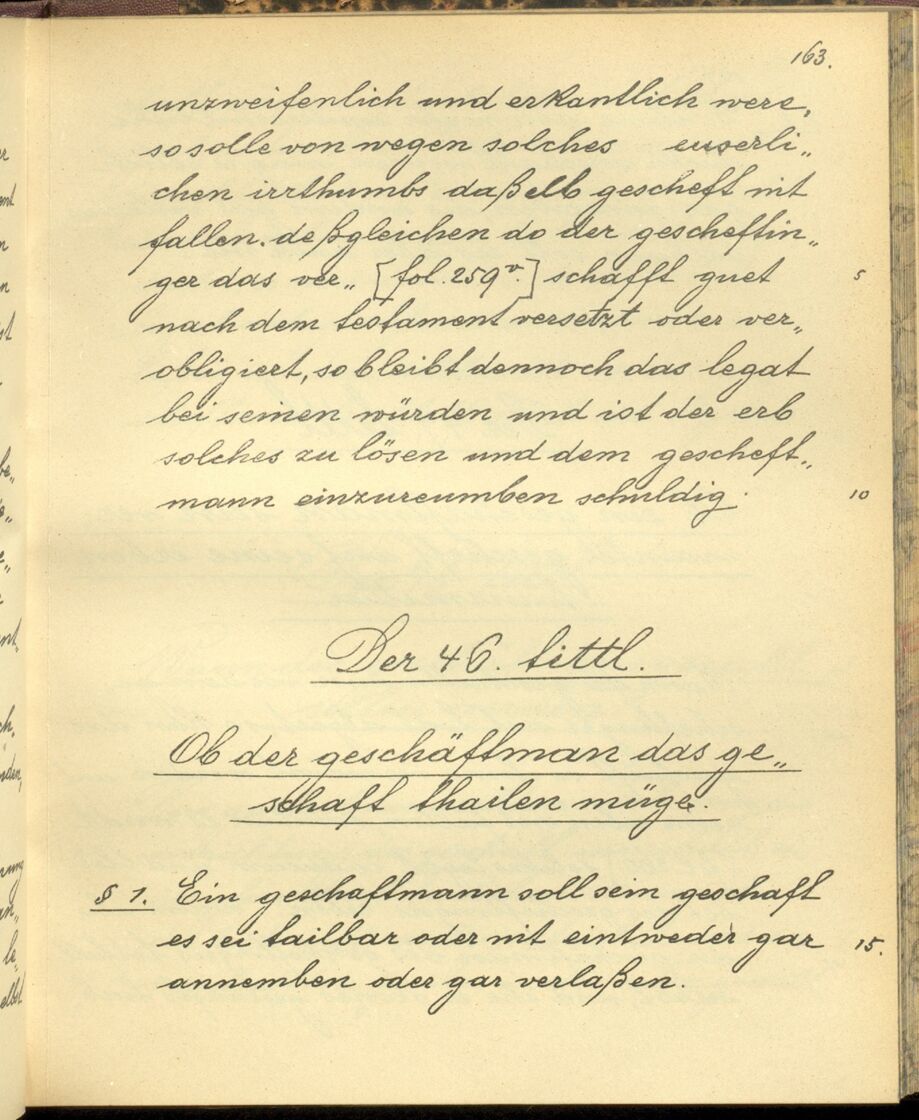 163.
unzweifenlich und erkantlich were,
so solle von wegen solches euserli„
chen irrthumbs daßelb gescheft nit
fallen. deßgleichen do der gescheftin„
ger das ver„ [fol. 259v.] schafft guet 5
nach dem testament versetzt oder ver„
obligiert, so bleibt dennoch das legat
bei seinen würden und ist der erb
solches zu lösen und dem gescheft„
mann einzureumben schuldig. 10
Der 46. tittl.
Ob der geschäftman das ge„
schaft thailen müge.
§ 1. Ein geschaftmann soll sein geschaft
es sei tailbar oder nit eintweder gar 15.
annemben oder gar verlaßen.